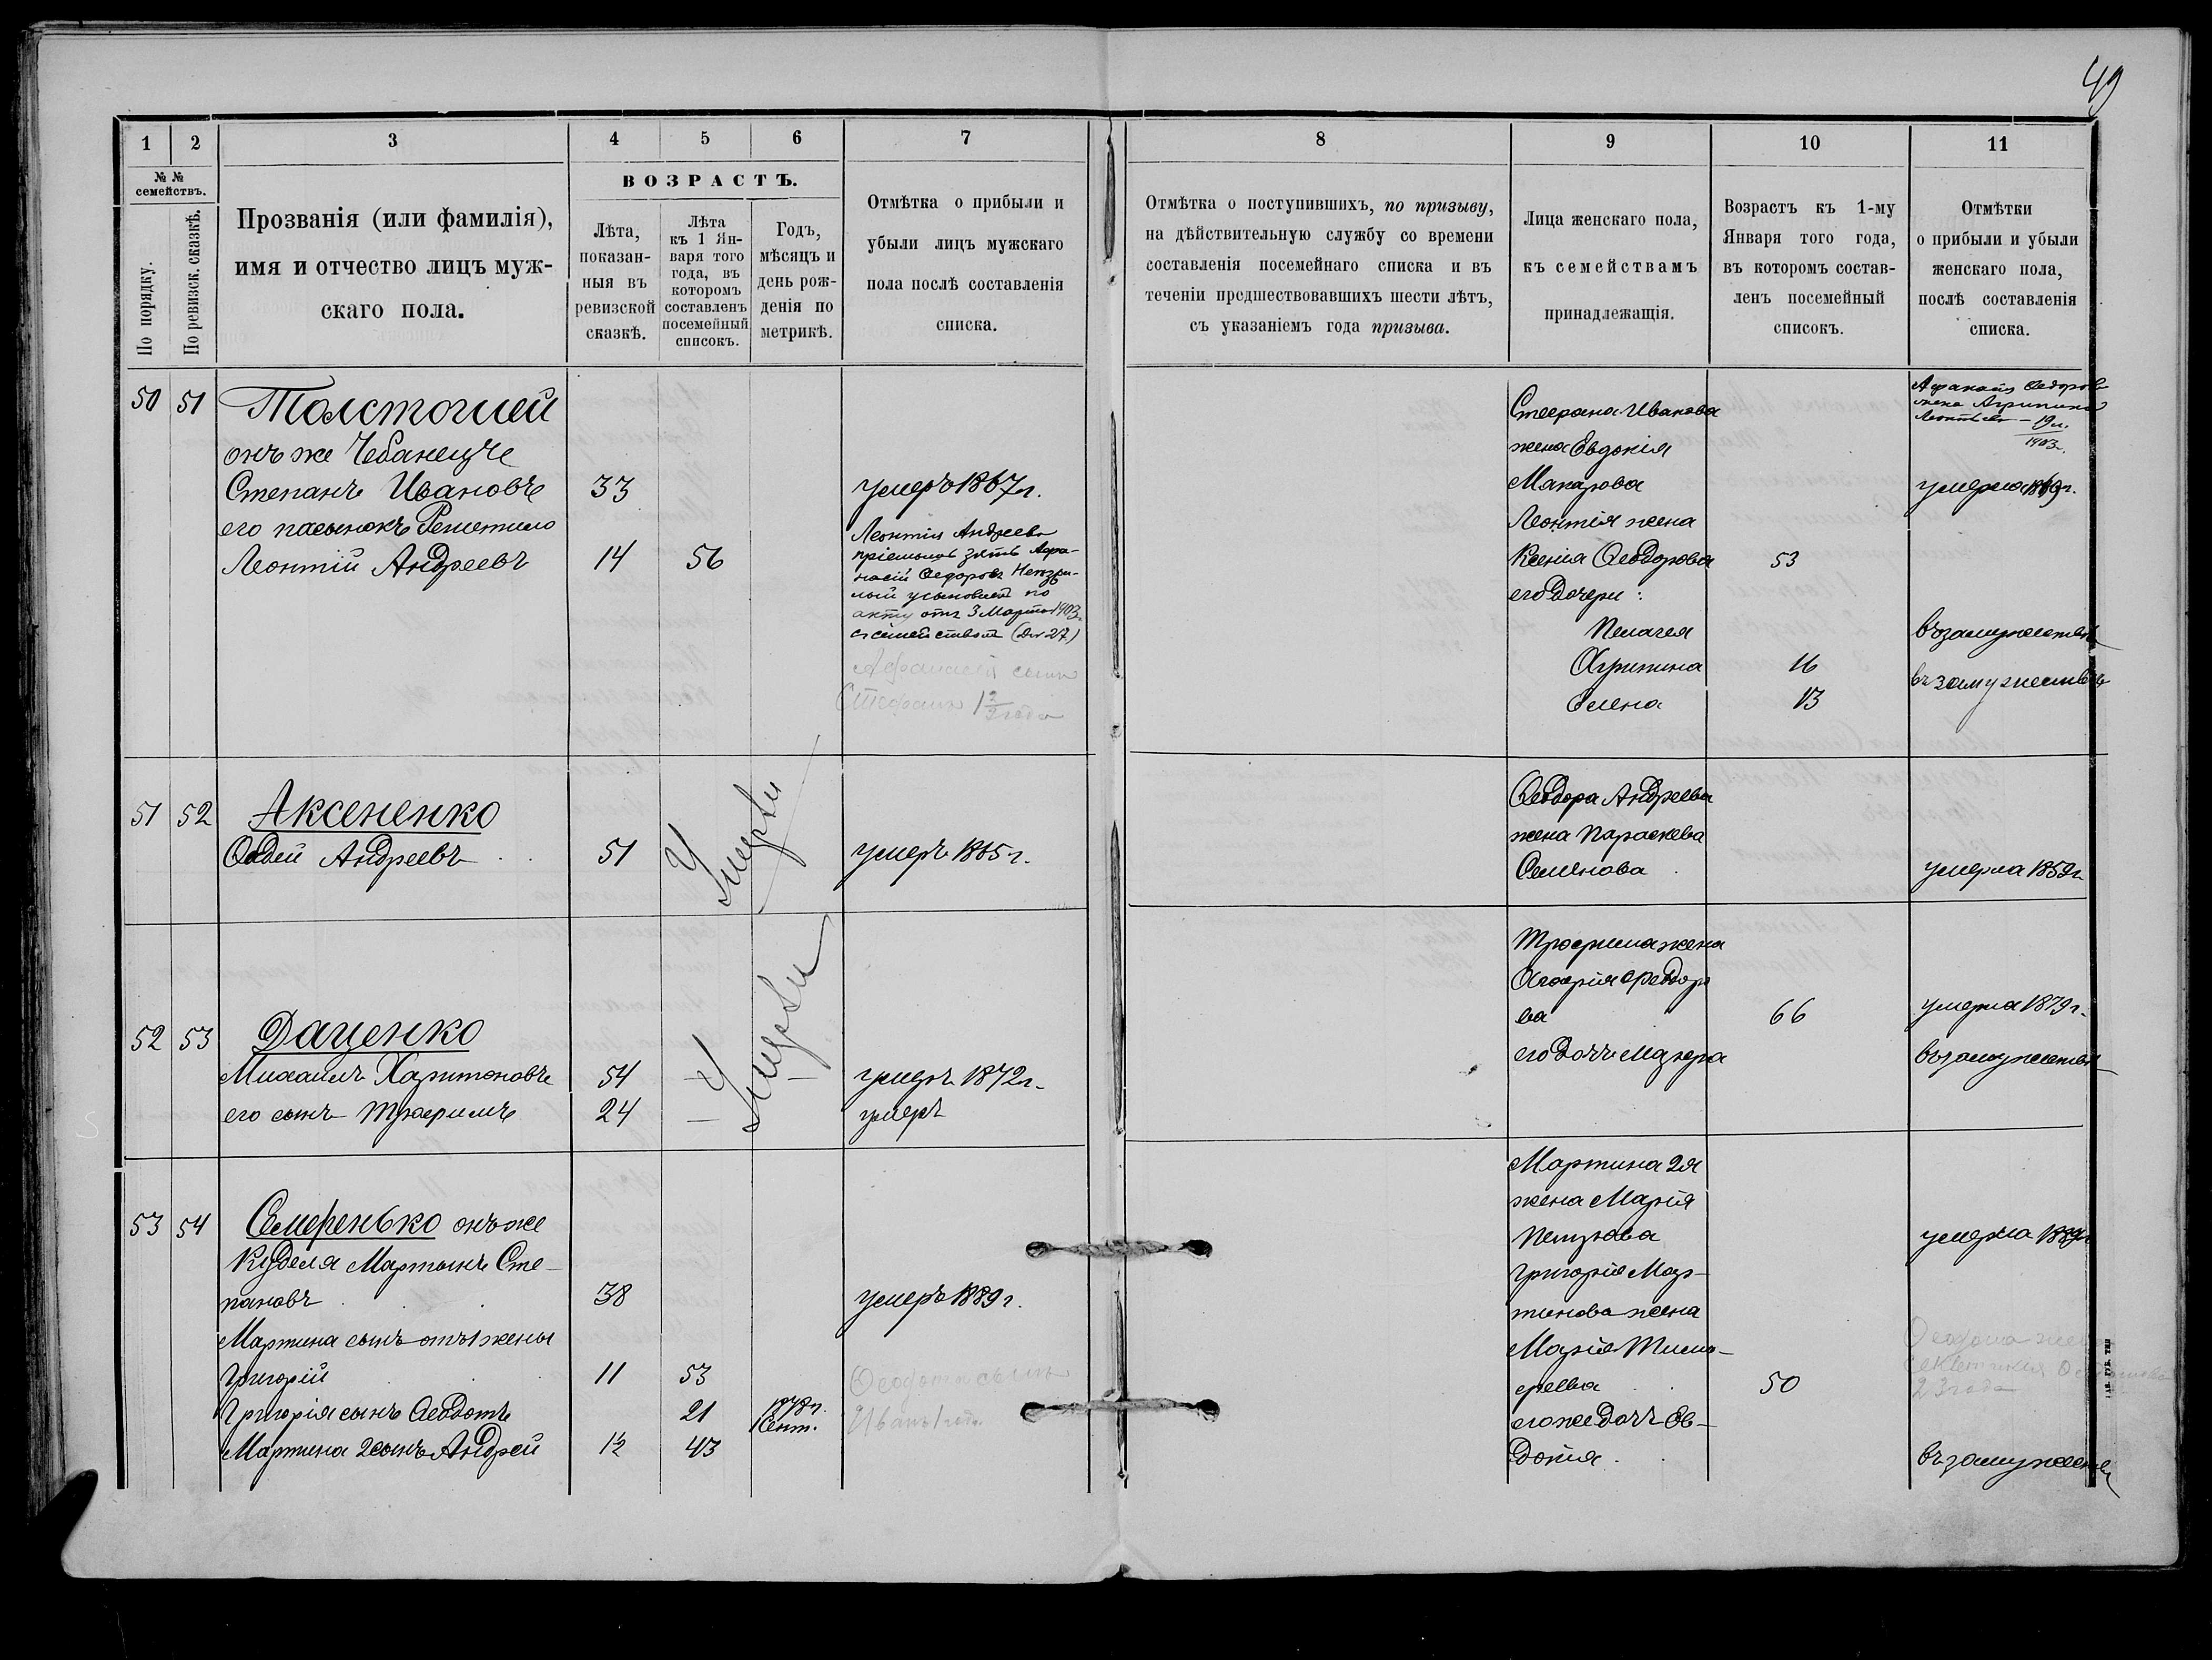 49
1 2 3 4 5 6 7 8 9 10 11
№ №
семействъ.
По порядку.
По ревизск. сказкѣ.
Прозванія (или фамилія),
имя и отчество лицъ муж-
скаго пола.
ВОЗРАСТЪ.
Лѣта,
показан-
ныя въ
ревизской
сказкѣ.
Лѣта
къ 1 Ян-
варя того
года, въ
которомъ
составленъ
посемейный
списокъ.
Годъ,
мѣсяцъ и
день рож-
денія по
метрикѣ.
Отмѣтка о прибыли и
убыли лицъ мужскаго
пола послѣ составленія
списка.
Отмѣтка о поступившихъ, по призыву,
на дѣйствительную службу со времени
составленія посемейнаго списка и въ
теченіи предшествовавшихъ шести лѣтъ,
съ указаніемъ года призыва.
Лица женскаго пола,
къ семействамъ
принадлежащія.
Возрастъ къ 1-му
Января того года,
въ которомъ состав-
ленъ посемейный
списокъ.
Отмѣтки
о прибыли и убыли
женскаго пола,
послѣ составленія
списка.
50 51 Толстошей
онъ же Чебанецъ
Степанъ Ивановъ 33 умеръ 1867 г.
его пасынокъ Решетило
Леонтій Андреевъ 14 56
Леонтія Андреева
пріемышъ зять Афа-
насій Федоровъ
усыновленъ по
акту отъ 3 Марта 1903 г.
съ семействомъ (Дѣ 27)
Афанасія сынъ
Стефанъ 1 2/2 года
Стефана Иванова
жена Евдокія
Макарова умерла 1869 г.
Леонтія жена
Ксенія Феодорова 53
его дочери:
Пелагея въ замужествѣ
Агрипина 16 въ замужествѣ
Елена 13
Афанасія Федоров
жена Агрипина
Леонтьева — 19 л.
1903
51 52 Аксененко
Фадей Андреевъ 51 умеръ 1865 г.
Умерли
Феодора Андреева
жена Параскева
Семенова умерла 1859 г.
52 53 Даценко
Михаилъ Харитоновъ 54 — — умеръ 1872 г.
его сынъ Трофимъ 24 — умеръ
Умерли
Трофима жена
Агафія Феодоро
ва 66 умерла 1879 г.
его дочь Мавра въ замужествѣ
53 54 Семеренько онъ же
Куделя Мартынъ Сте-
пановъ 38 умеръ 1889 г.
Мартина сынъ отъ 1 жены
Григорій 11 53
Григорія сынъ Феодотъ 21 1872 г.
1 Сент.
Мартина 2 сынъ Андрей 1½ 43
Феодота сынъ
Иванъ 1 года
Мартина 2я
жена Марія
Петрова умерла 1889 г.
Григорія Мар-
тинова жена
Марія Тимо-
феева 50
его же дочь Ев-
докія въ замужествѣ
Феодота жена
23 года